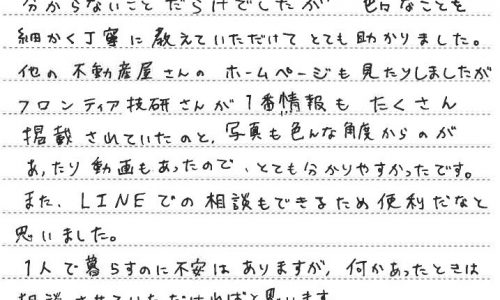 分からないことだらけでしたが 色んなことを
細かく丁寧に教えていただけてとても助かりました。
他の不動産屋さんのホームページも見たりしましたが
フロンティア技研さんが1番情報もたくさん
掲載されていたのと、写真も色んな角度からのが
あったり動画もあったので、とても分かりやすかったです。
また、LINEでの相談もできるため便利だなと
思いました。
1人で暮らすのに不安はありますが、何かあったときは
相談させていただければと思います